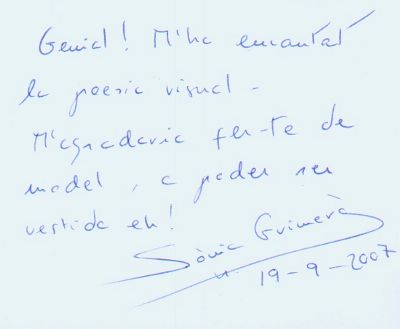 Genial! M'ha encantat
la poesia visual.
M'agradaria fer-te de
model, a poder ser
vestida eh!
Sònia Guimerà
19-9-2007